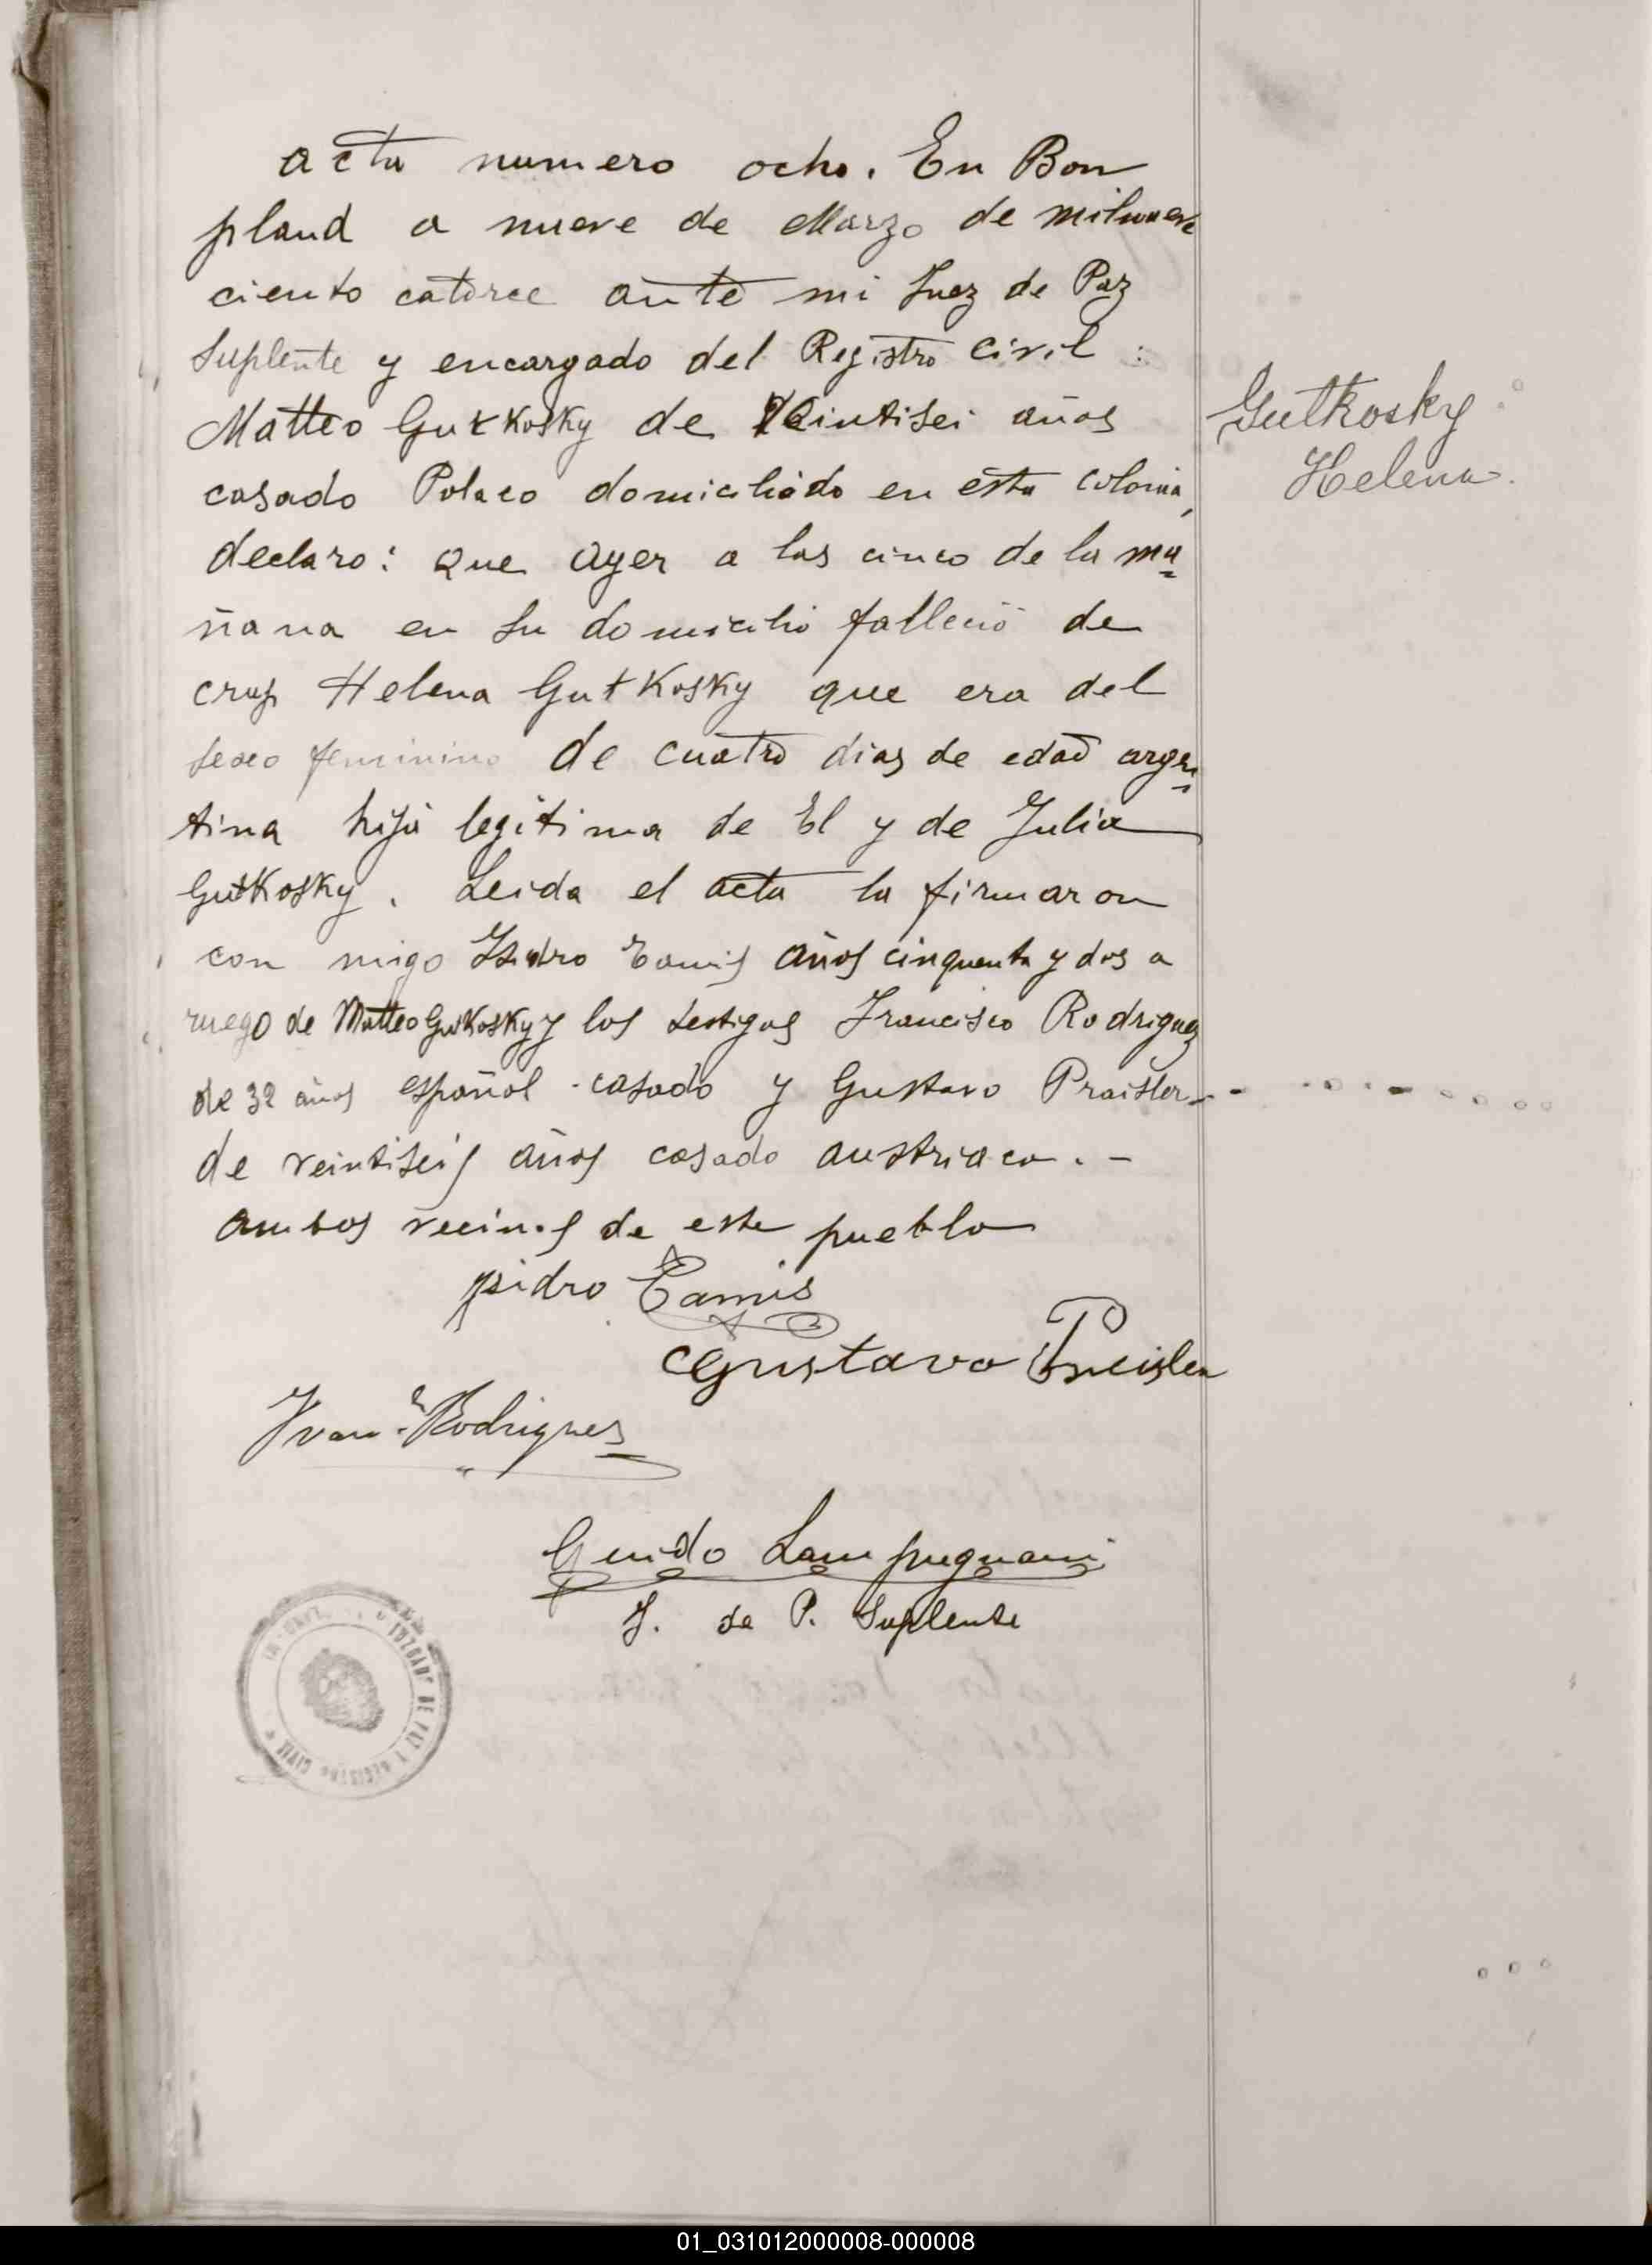 acta numero ocho. En Bon
pland a nueve de Marzo de milnueve
ciento catorce ante mi Juez de Paz
Suplente y encargado del Registro Civil:
Matteo Gutkosky de Veintisei años
casado Polaco domiciliado en esta colonia,
declaro: que ayer a las cinco de la ma=
ñana en su domicilio falleció de
crup Helena Gutkosky que era del
sexo feminino de cuatro dias de edad argen=
tina hija legitima de El y de Julia
Gutkosky. Leida el acta la firmaron
con migo Isidro Camis años cinquenta y dos a
ruego de Matteo Gutkosky y los testigos Francisco Rodriguez
de 32 años español casado y Gustavo Praisler
de veintiseis años casado austriaco.-
ambos vecinos de este pueblo
Gutkosky
Helena.
Isidro Camis
Gustavo Preisler
Fran.co Rodrigues
Guido Lampugnani
J. de P. Suplente
JUZGADO DE PAZ Y REGISTRO CIVIL
01_031012000008-000008